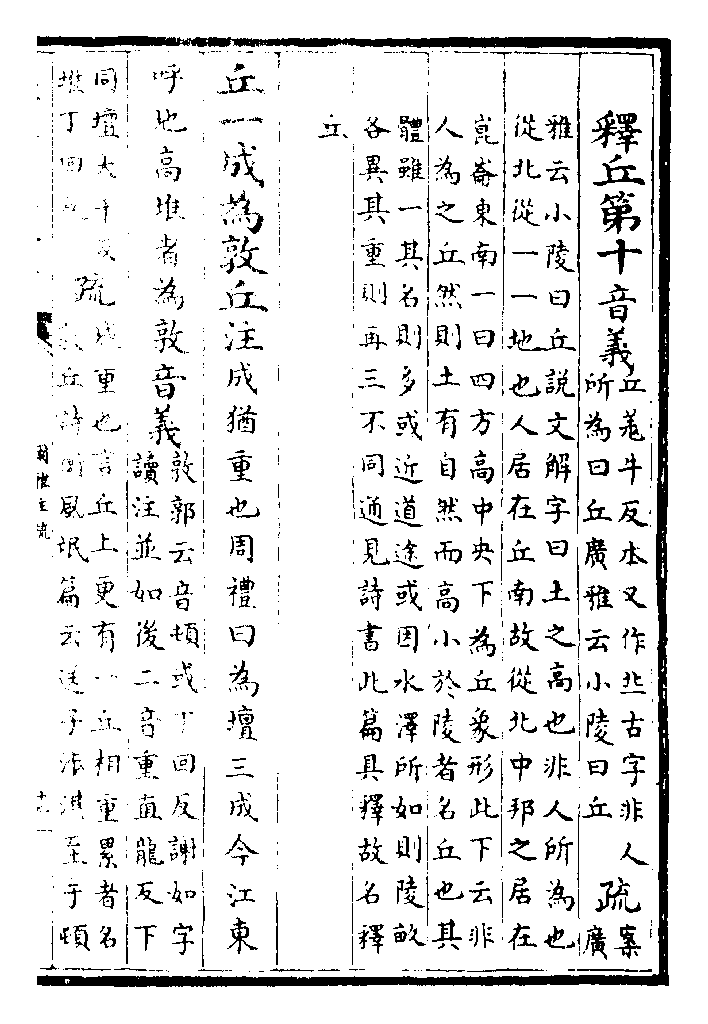 釋丘第十音義丘羗牛反本又作丠古字非人
所為曰丘廣雅云小陵曰丘
疏案
廣
雅云小陵曰丘說文解字曰土之高也非人所為也
從北從一一地也人居在丘南故從北中邦之居在
崑崙東南一曰四方高中央下為丘象形此下云非
人為之丘然則土有自然而高小於陵者名丘也其
體雖一其名則多或近道途或因水澤所如則陵畝
各異其重則再三不同通見詩書此篇具釋故名釋
丘
丘一成為敦丘注成猶重也周禮曰為壇三成今江東
呼地高堆者為敦音義
敦郭云音頓或丁回反謝如字
讀注並如後二音重直龍反下
同壇大干反
堆丁回反
疏成重也言丘上更有一丘相重累者名
敦丘詩衛風氓篇云送子涉淇至于頓
爾雅注疏